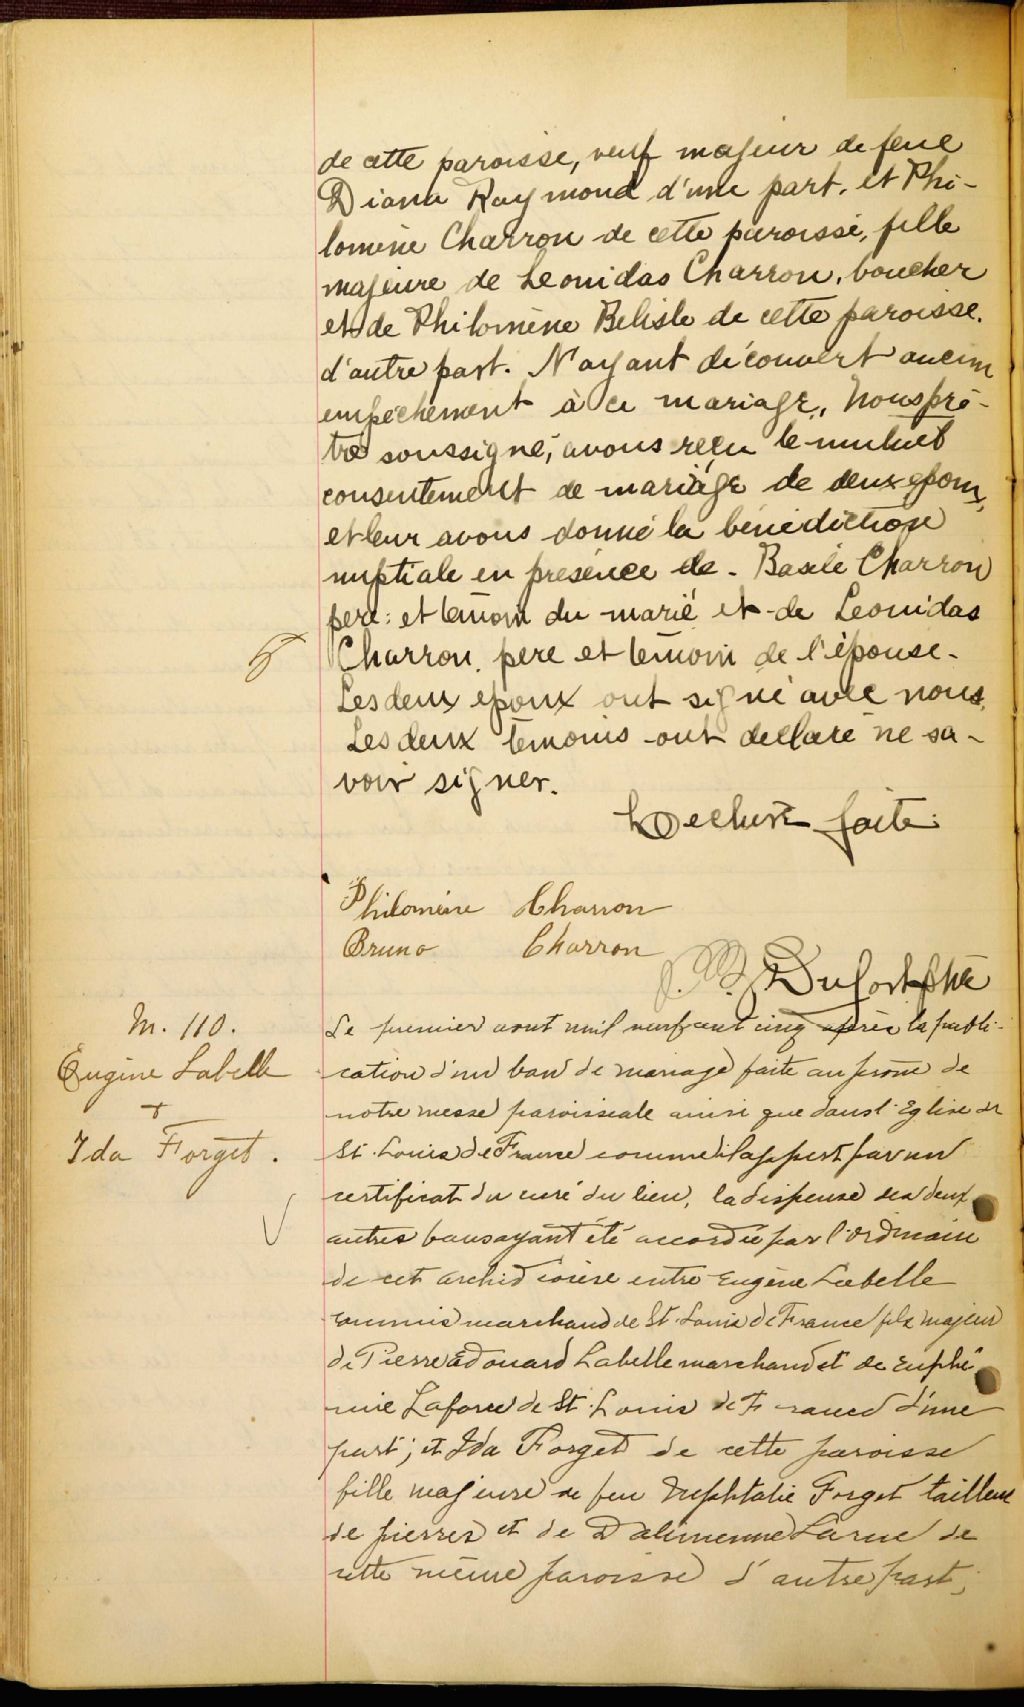 de cette paroisse, veuf majeur de feue
Diana Raymond d'une part, et Phi-
lomène Charron de cette paroisse, fille
majeure de Leonidas Charron, boucher
et de Philomène Belisle de cette paroisse.
d'autre part. N'ayant découvert aucun
empêchement à ce mariage, Nous prê-
tre soussigné, avons reçu le mutuel
consentement de mariage de deux epoux,
et leur avons donné la bénédiction
nuptiale en présence de - Basile Charron
pere: et temoin du marié et de Leonidas
Charron, pere et temoin de l'épouse -
Les deux epoux ont signé avec nous.
Les deux temoins ont declaré ne sa-
voir signer.
Lecture faite.
Philomène Charron
Bruno Charron
Dufort ptre
M. 110.
Eugène Labelle
+
Ida Forget.
Le premier aout mil neuf cent cinq après la publi-
cation d'un ban de mariage faite au prone de
notre messe paroissiale ainsi que dans l'Eglise de
St. Louis de France comme il appert par un
certificat du curé du lieu, la dispense des deux
autres bans ayant été accordée par l'ordinaire
de cet archidiocèse entre Eugène Labelle
commis marchand de St. Louis de France fils majeur
de Pierre Edouard Labelle marchand et de Euphé-
mie Laforce de St. Louis de France d'une
part; et Ida Forget de cette paroisse
fille majeure de feu Nephtalie Forget tailleur
de pierres et de Larue de
cette même paroisse d'autre part,